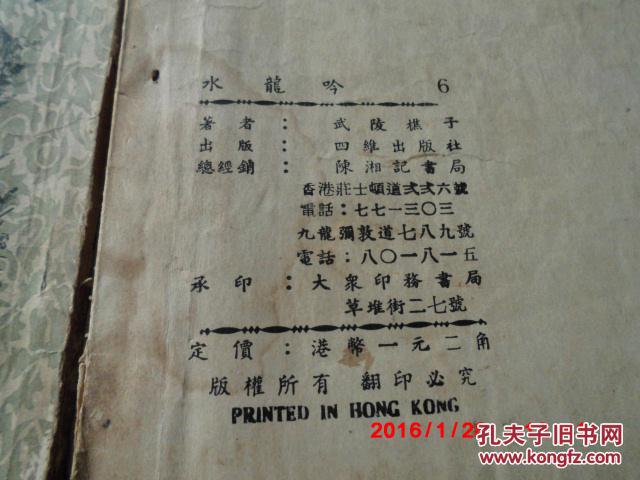 水龍吟 6
著者：武陵樵子
出版：四維出版社
總經銷：陳湘記書局
香港莊士頓道弍弍六號
電話：七七一三〇三
九龍彌敦道七八九號
電話：八〇一八一五
承印：大眾印務書局
草堆街二七號
定價：港幣一元二角
版權所有 翻印必究
PRINTED IN HONG KONG
2016/1/2
孔夫子旧书网
www.kongfz.com